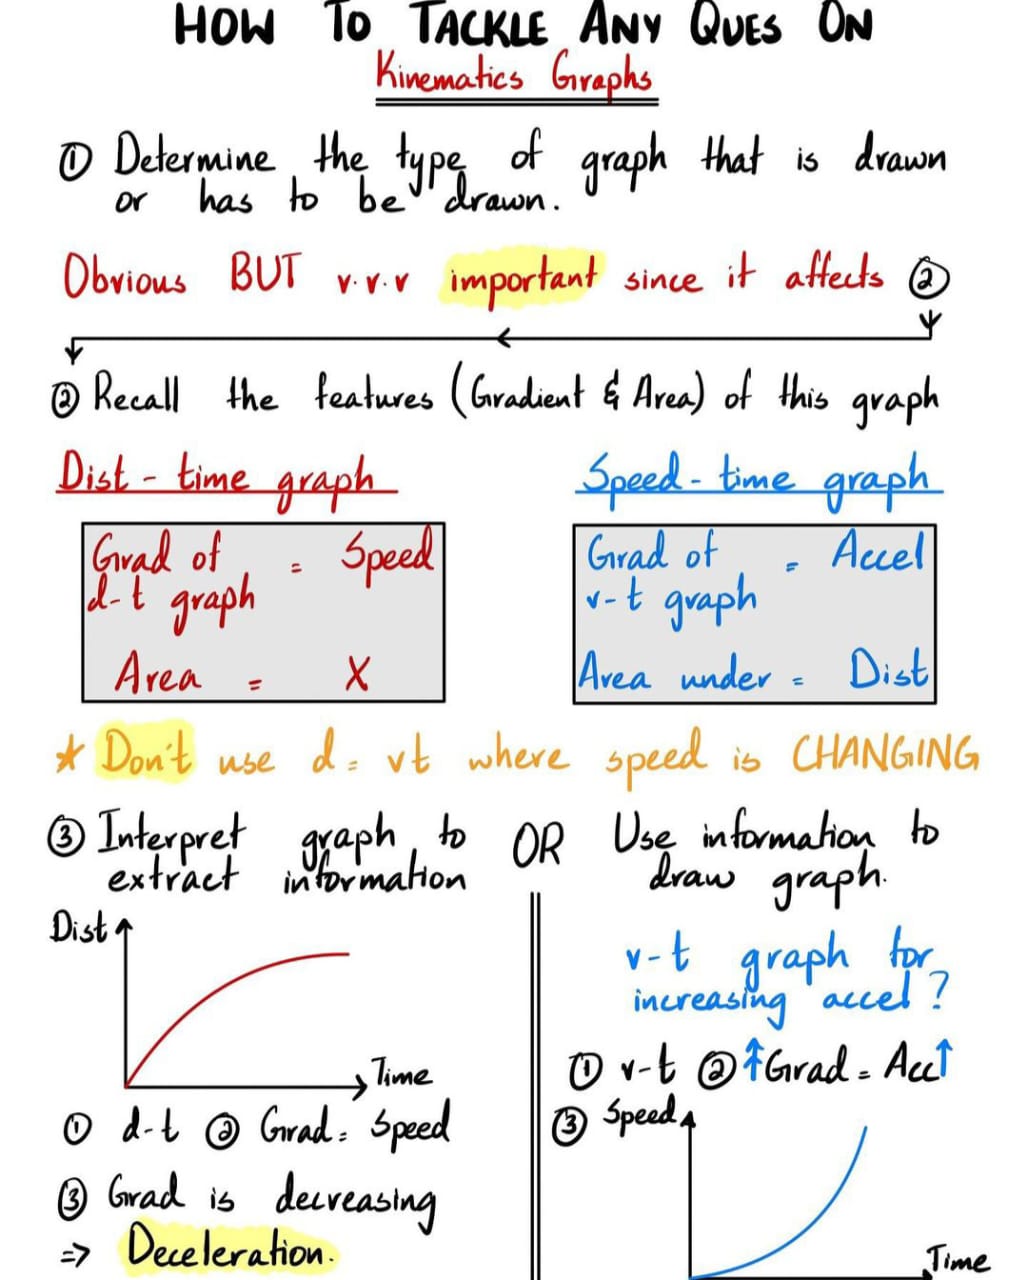 HOW TO TACKLE ANY QUES ON
Kinematics Graphs
① Determine the type of graph that is drawn
or has to be drawn.
Obvious BUT v.v.v important since it affects ②
② Recall the features (Gradient & Area) of this graph
Dist - time graph
Grad of
d-t graph = Speed
Area = X
Speed - time graph
Grad of
v-t graph = Accel
Area under = Dist
* Don't use d = vt where speed is CHANGING
③ Interpret graph to
extract information
OR
Use information to
draw graph.
Dist
Time
① d-t ② Grad = Speed
③ Grad is decreasing
⇒ Deceleration.
v-t graph for
increasing accel?
① v-t ② ↑Grad = Acc↑
③ Speed
Time